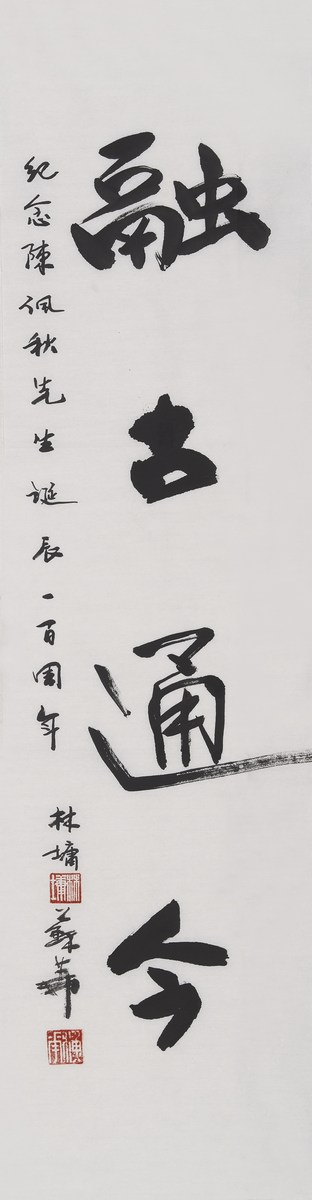 融古通今
纪念陳佩秋先生誕辰一百周年
林墉
蘇華